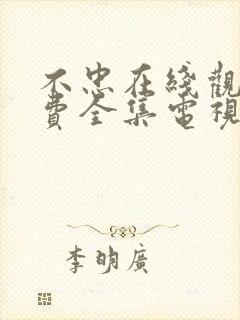 不忠在綫觀
費全集電視
李明廣